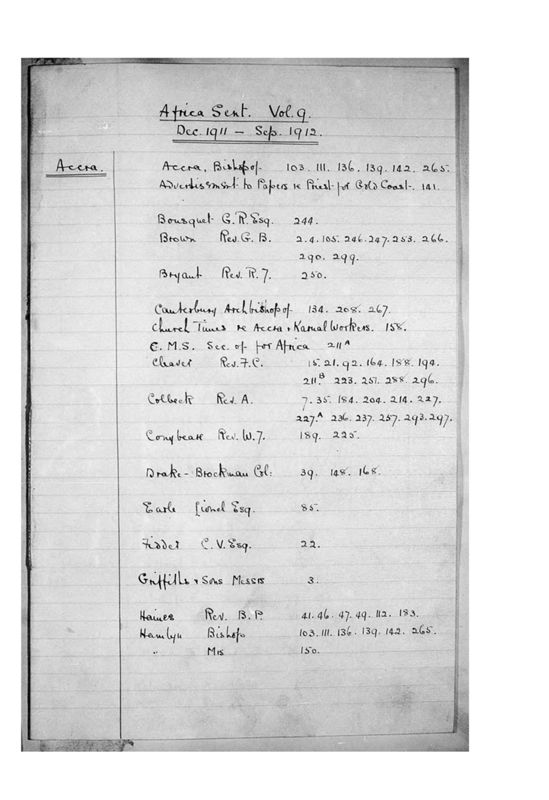 Africa Sent. Vol. 9.
Dec. 1911 – Sep. 1912.
Accra.
Accra, Bishop of 103. 111. 136. 139. 142. 265.
Advertisement to Papers re Priest for Gold Coast. 141.
Bousquet G. R. Esq. 244.
Brown Rev. G. B. 2. 4. 105. 246. 247. 253. 266.
290. 299.
Bryant Rev. R. J. 250.
Canterbury Archbishop of 134. 208. 267.
Church Times re Accra & Karnal Workers. 158.
C. M. S. Sec. of for Africa 211 A
Cleaver Rev. F. C. 15. 21. 92. 164. 188. 194.
211.B 223. 251. 288. 296.
Colbeck Rev. A. 7. 35. 184. 204. 214. 227.
227.A 236. 237. 257. 293. 297.
Conybeare Rev. W. J. 189. 225.
Drake-Brockman Col: 39. 148. 168.
Earle Lionel Esq. 85.
C. V. Esq. 22.
Griffiths & Sons Messrs 3.
Haines Rev. B. P. 41. 46. 47. 49. 112. 183.
Hamlyn Bishop 103. 111. 136. 139. 142. 265.
" Mrs 150.